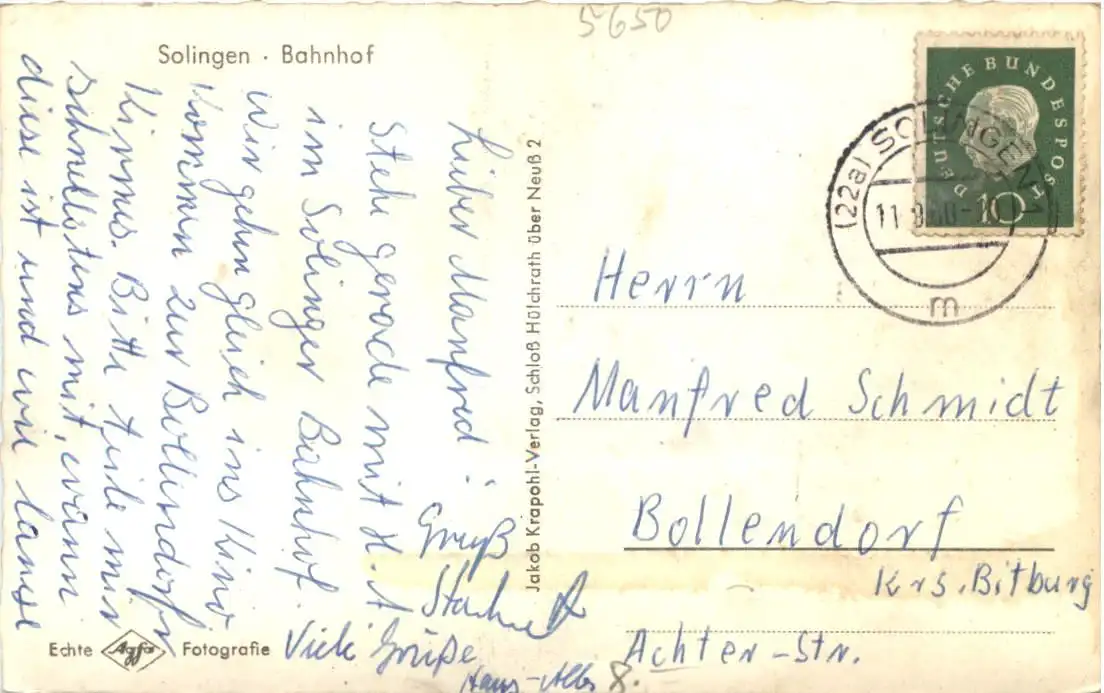 5650
Solingen · Bahnhof
Lieber Manfred!
Stehe gerade mit H. A
im Solinger Bahnhof.
Wir gehn gleich ins Kino
Kommen zur Bollendorfer
Kirmes. Bitte teile mir
schnellstens mit, wann
diese ist und wie lange
Gruß
Viele Grüße
Echte Agfa Fotografie
Jakob Krapohl-Verlag, Schloß Hülchrath über Neuß 2
DEUTSCHE BUNDESPOST
10
(22a) SOLINGEN 1
11.9.60-10
m
Herrn
Manfred Schmidt
Bollendorf
Krs. Bitburg
Achter-Str.
8.